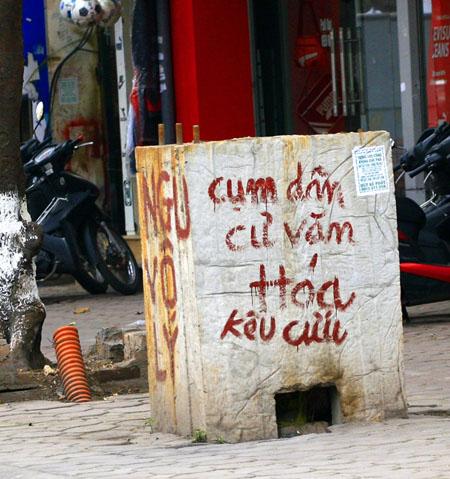 NGU
VÔ
LÝ
cụm dân
cư văn
Hóa
kêu cứu
EVISU
JEANS